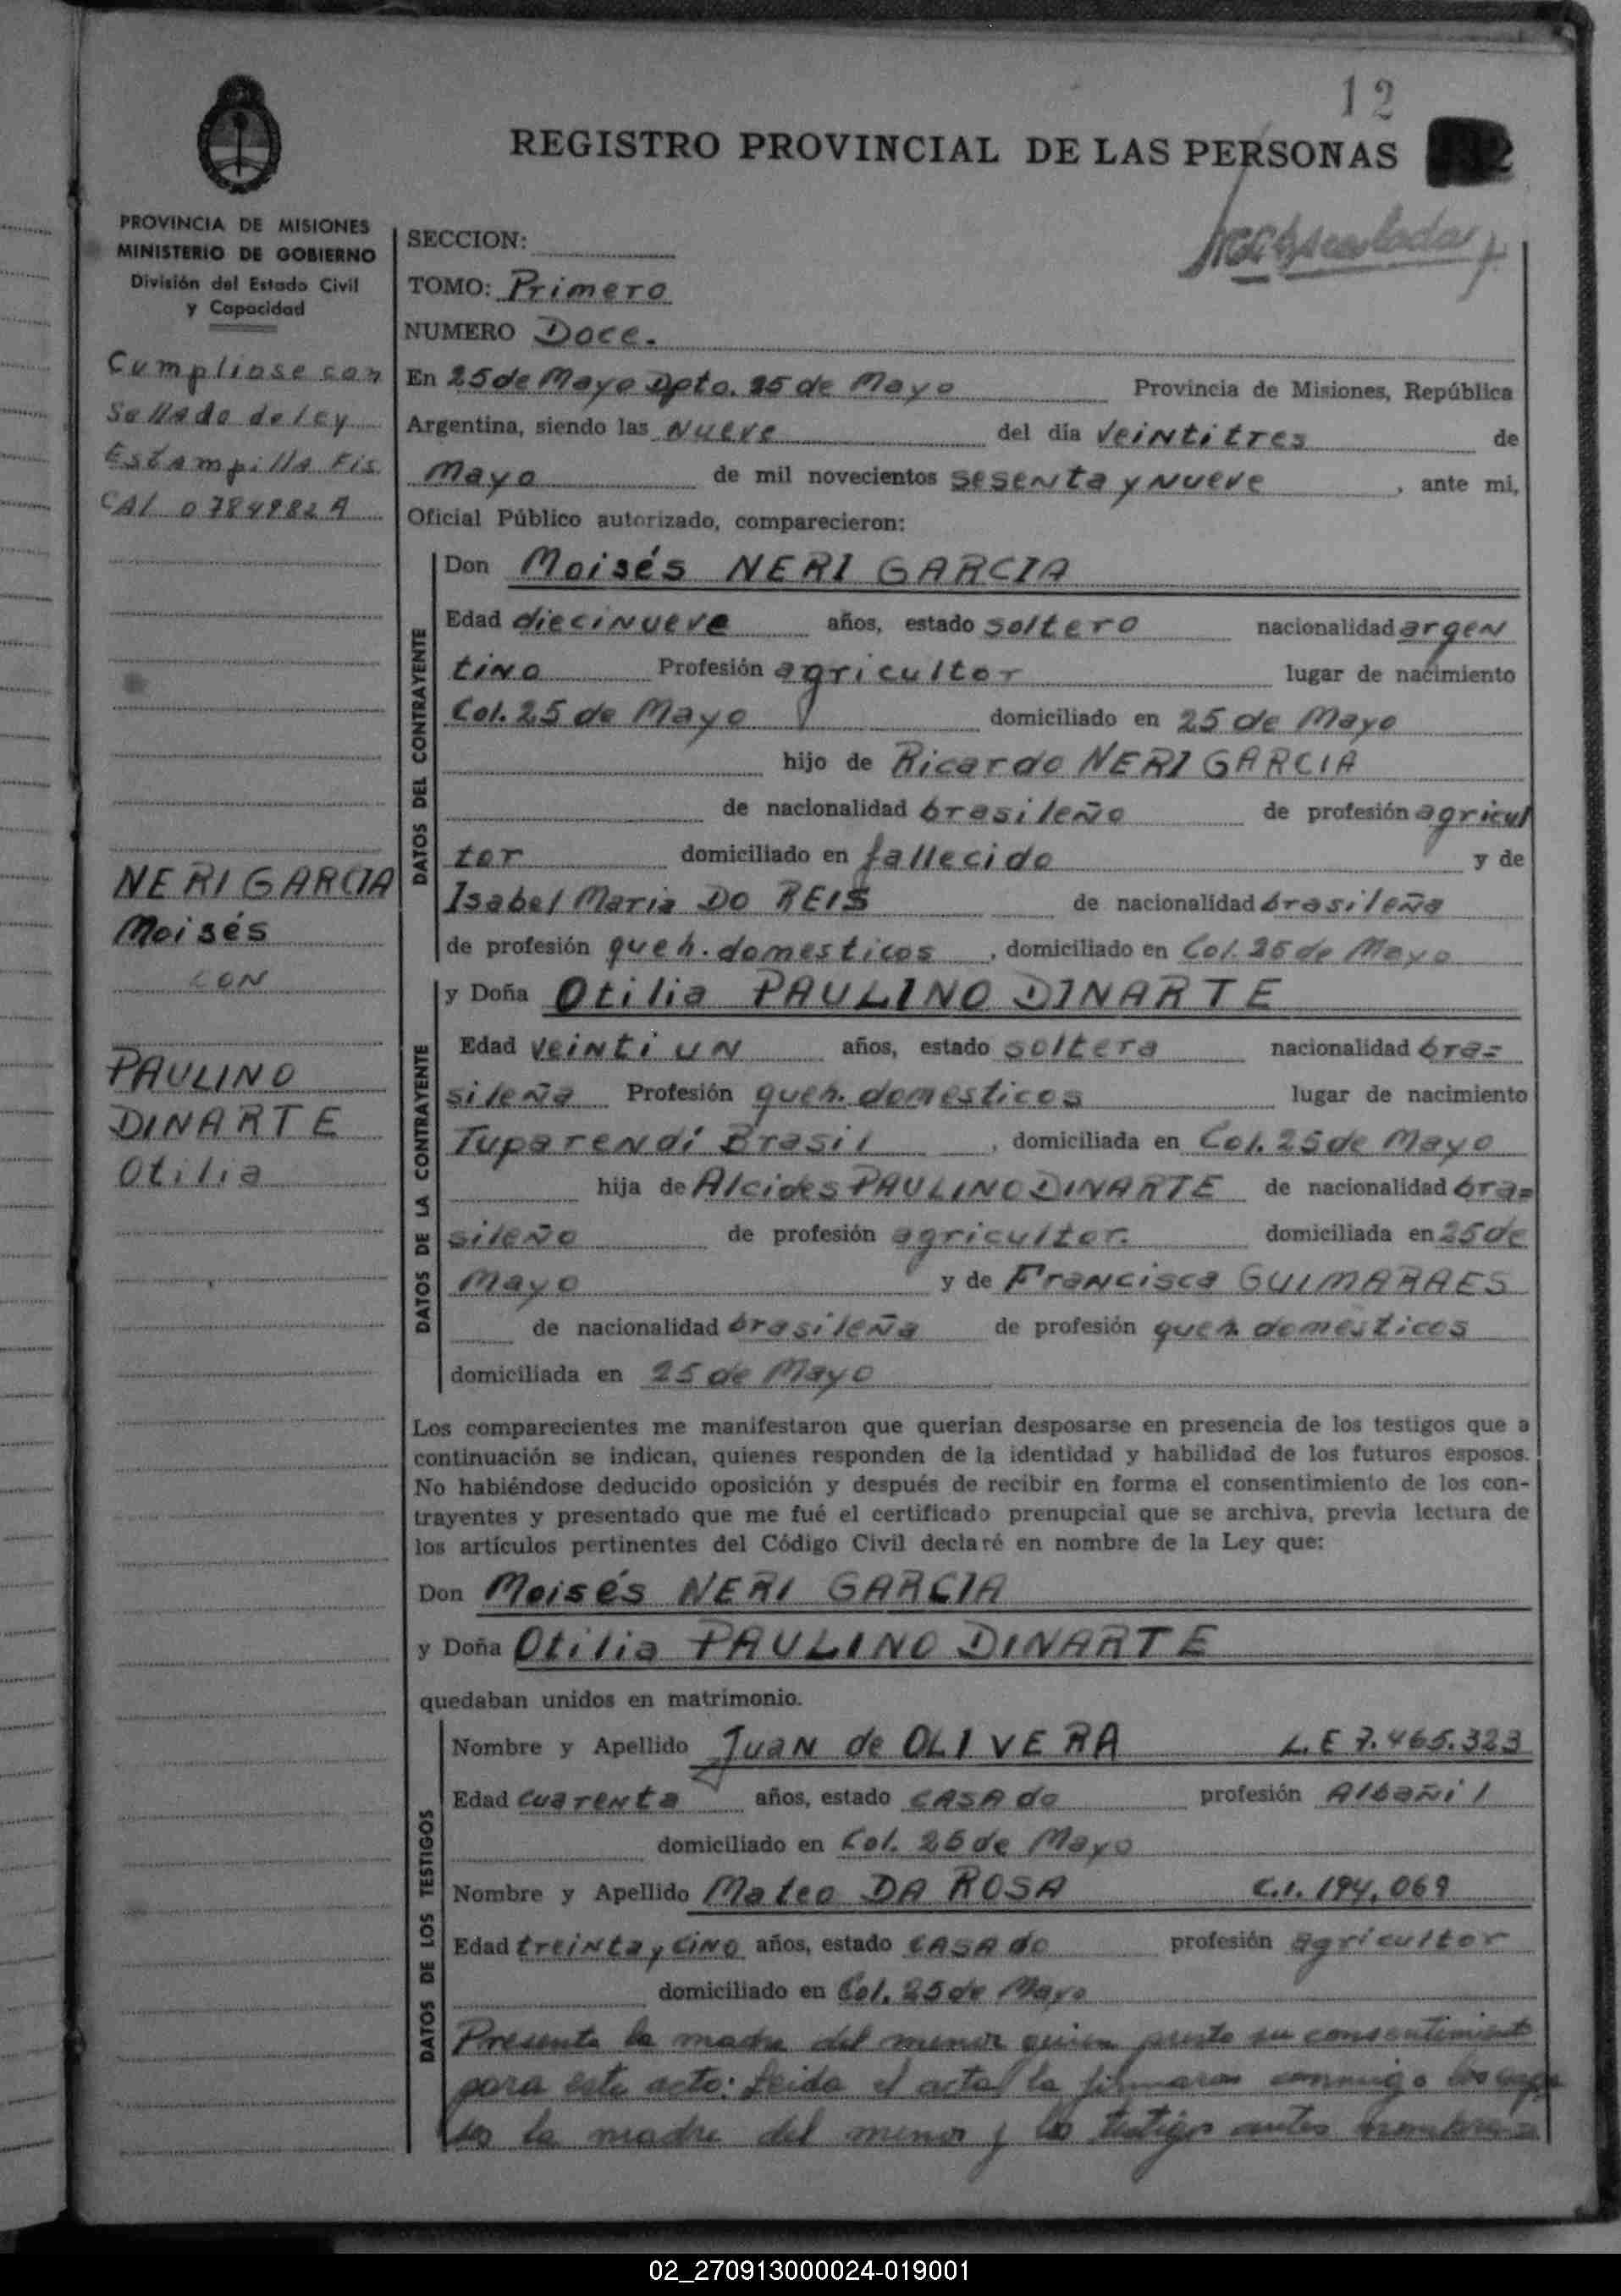 12
REGISTRO PROVINCIAL DE LAS PERSONAS
PROVINCIA DE MISIONES
MINISTERIO DE GOBIERNO
División del Estado Civil
y Capacidad
Cumpliose con
Sellado de ley
Estampilla Fis
CAl
NERI GARCIA
Moisés
CON
PAULINO
DINARTE
Otilia
SECCION:
TOMO: Primero
NUMERO Doce.
En 25 de Mayo Dpto. 25 de Mayo Provincia de Misiones, República
Argentina, siendo las Nueve del día Veintitres de
Mayo de mil novecientos sesenta y Nueve, ante mi,
Oficial Público autorizado, comparecieron:
DATOS DEL CONTRAYENTE
Don Moisés NERI GARCIA
Edad diecinueve años, estado soltero nacionalidad argen
tino Profesión agricultor lugar de nacimiento
Col. 25 de Mayo domiciliado en 25 de Mayo
hijo de Ricardo NERI GARCIA
de nacionalidad brasileño de profesión agricul
tor domiciliado en fallecido y de
Isabel Maria DO REIS de nacionalidad brasileña
de profesión queh. domesticos, domiciliado en Col. 25 de Mayo
DATOS DE LA CONTRAYENTE
y Doña Otilia PAULINO DINARTE
Edad veinti un años, estado soltera nacionalidad bra=
sileña Profesión queh. domesticos lugar de nacimiento
Tuparendí Brasil, domiciliada en Col. 25 de Mayo
hija de Alcides PAULINO DINARTE de nacionalidad bra=
sileño de profesión agricultor. domiciliada en 25 de
Mayo y de Francisca GUIMARAES
de nacionalidad brasileña de profesión queh domésticos
domiciliada en 25 de Mayo
Los comparecientes me manifestaron que querían desposarse en presencia de los testigos que a
continuación se indican, quienes responden de la identidad y habilidad de los futuros esposos.
No habiéndose deducido oposición y después de recibir en forma el consentimiento de los con-
trayentes y presentado que me fué el certificado prenupcial que se archiva, previa lectura de
los artículos pertinentes del Código Civil declaré en nombre de la Ley que:
Don Moisés NERI GARCIA
y Doña Otilia PAULINO DINARTE
quedaban unidos en matrimonio.
DATOS DE LOS TESTIGOS
Nombre y Apellido Juan de OLIVERA L.E 7.465.323
Edad cuarenta años, estado CASAdo profesión Albañil
domiciliado en Col. 25 de Mayo
Nombre y Apellido Mateo DA ROSA C.I. 194,069
Edad treinta y Cino años, estado CASAdo profesión agricultor
domiciliado en Col. 25 de Mayo
Presente la madre del menor quien presto su consentimient
para este acto: Leida el acta la firmaron conmigo los espo
sos la madre del menor y los testigos antes
02_270913000024-019001